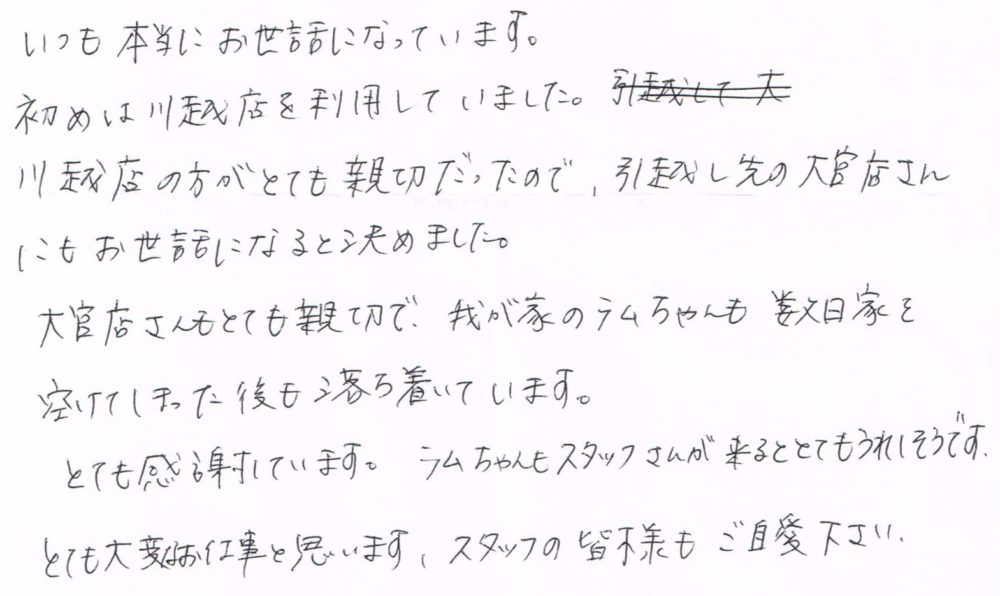 いつも本当にお世話になっています。
初めは川越店を利用していました。引越して大
川越店の方がとても親切だったので、引越し先の大宮店さん
にもお世話になると決めました。
大宮店さんもとても親切で、我が家のラムちゃんも数日家を
空けてしまった後も落ち着いています。
とても感謝しています。ラムちゃんもスタッフさんが来るととてもうれしそうです。
とても大変なお仕事と思います、スタッフの皆様もご自愛下さい。